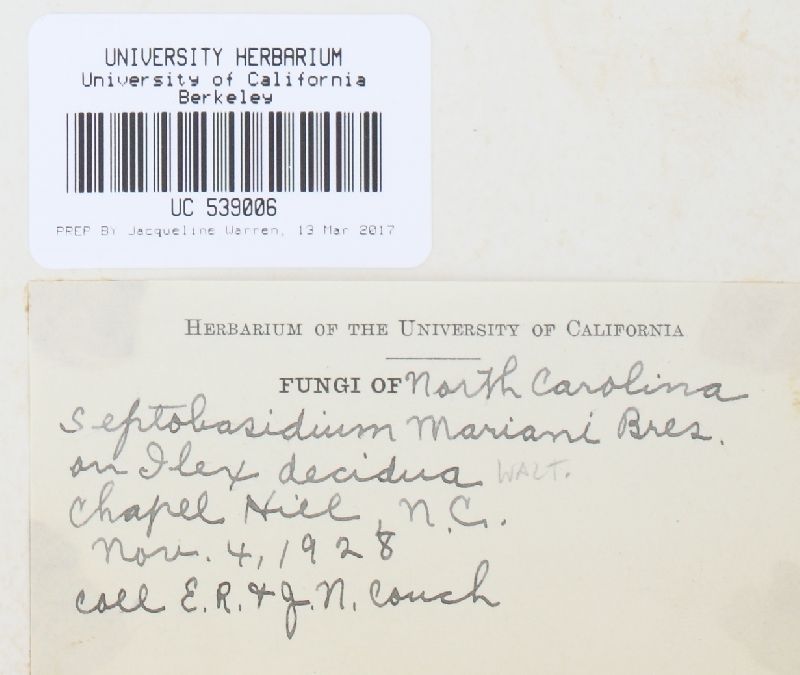 UNIVERSITY HERBARIUM
University of California
Berkeley
UC 539006
PREP BY Jacqueline Warren, 13 Mar 2017
HERBARIUM OF THE UNIVERSITY OF CALIFORNIA
FUNGI OF North Carolina
Septobasidium Mariani Bres.
on Ilex decidua WALT.
Chapel Hill, N.C.
Nov. 4, 1928
coll E.R. & J.N. Couch